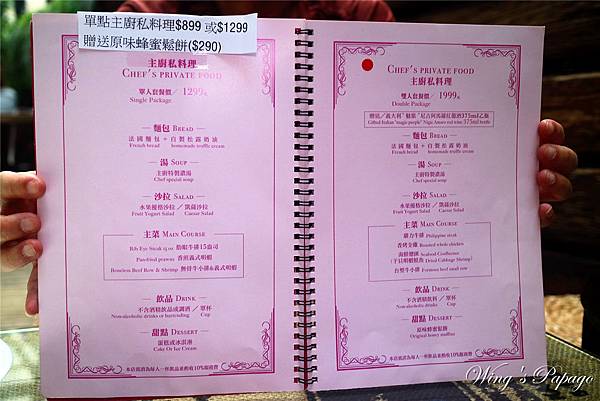 單點主廚私料理$899 或$1299
贈送原味蜂蜜鬆餅($290)
主廚私料理
CHEF'S PRIVATE FOOD
單人套餐價／1299元
Single Package
麵包 BREAD
法國麵包＋自製松露奶油
French bread homemade truffle cream
湯 SOUP
主廚特製濃湯
Chef special soup
沙拉 SALAD
水果優格沙拉／凱薩沙拉
Fruit Yogurt Salad Caesar Salad
主菜 MAIN COURSE
Rib Eye Steak 15 oz 肋眼牛排15盎司
Pan-fried prawns 香煎義式明蝦
Boneless Beef Row & Shrimp 無骨牛小排&義式明蝦
飲品 DRINK
不含酒精飲品或調酒／單杯
Non-alcoholic drinks or bartending Cup
甜點 DESSERT
蛋糕或冰淇淋
Cake Or Ice Cream
本店低消為每人一杯飲品並酌收10%服務費
主廚私料理
CHEF'S PRIVATE FOOD
雙人套餐價／1999元
Double Package
Gifted Italian "magic people" Nigio Amaro red wine 375ml bottle
麵包 BREAD
法國麵包＋自製松露奶油
French bread homemade truffle cream
湯 SOUP
主廚特製濃湯
Chef special soup
沙拉 SALAD
水果優格沙拉／凱薩沙拉
Fruit Yogurt Salad Caesar Salad
主菜 MAIN COURSE
菲力牛排 Philippine steak
香烤全雞 Roasted whole chicken
海鮮燉飯 Seafood Confluence
(干貝明蝦鮭魚 Dried Cabbage Shrimp)
台塑牛小排 Formosa beef small row
飲品 DRINK
不含酒精飲料／單杯
Non-alcoholic drinks Cup
甜點 DESSERT
原味蜂蜜鬆餅
Original honey muffins
本店低消為每人一杯飲品並酌收10%服務費
Wing's Papago